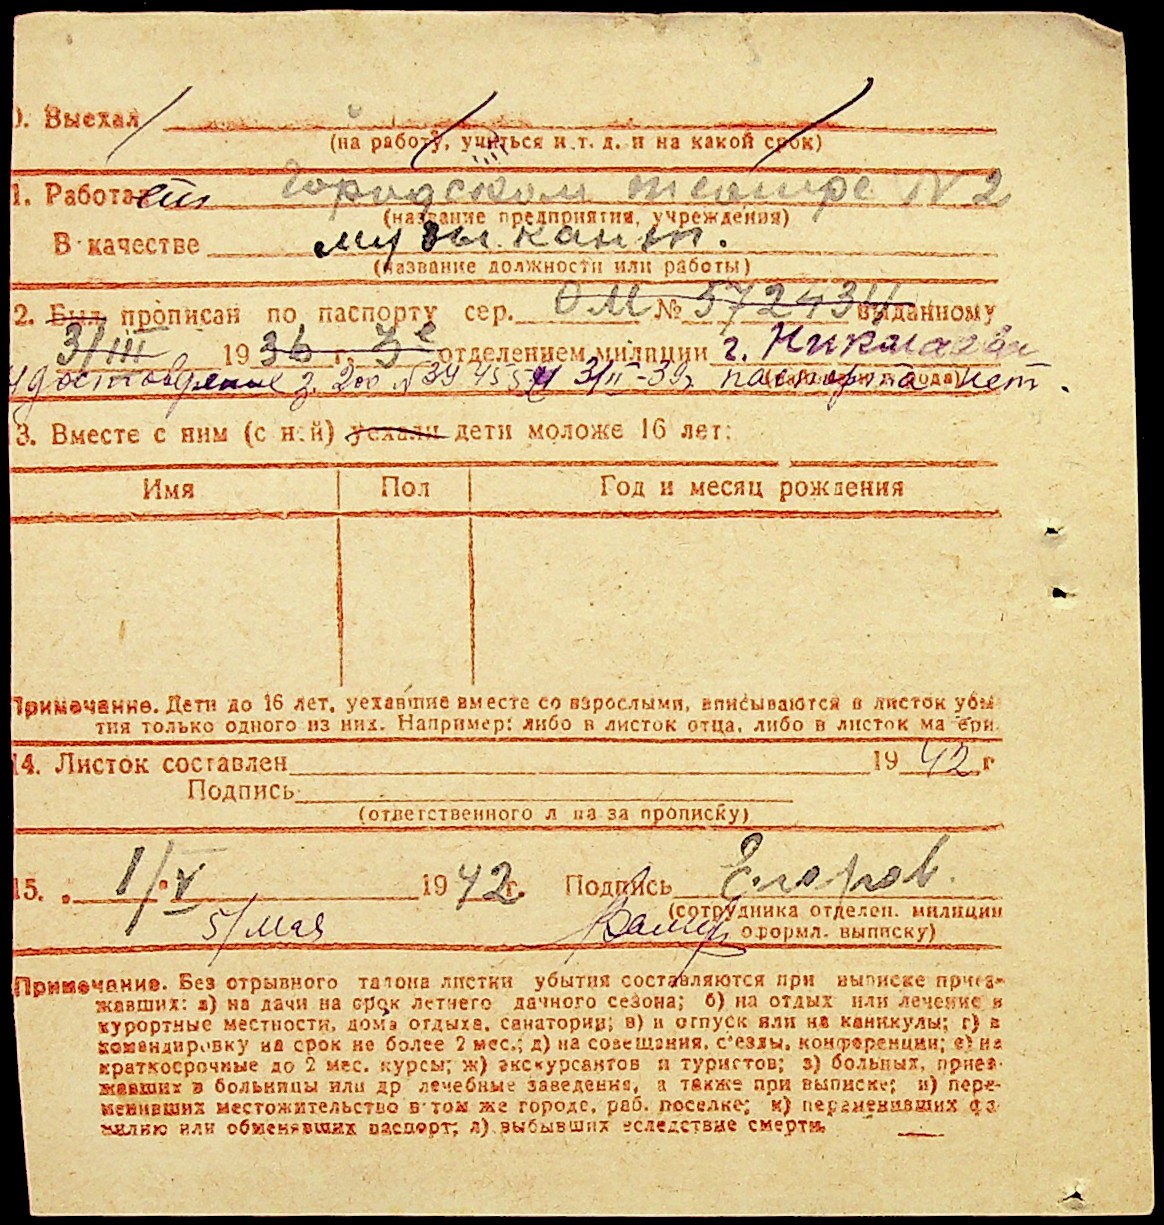 0. Выехал
(на работу, учиться и т. д. и на какой срок)
1. Работает Городском театре N 2
(название предприятия, учреждения)
В качестве музыкант.
(название должности или работы)
2. Был прописан по паспорту сер. ОМ № 572434 выданному
31/III 1936 г. 3е отделением милиции г. Николаев
удостоверение з. 200 N 394555 3/II-39г паспорта нет.
3. Вместе с ним (с ней) уехали дети моложе 16 лет:
Имя Пол Год и месяц рождения
Примечание. Дети до 16 лет, уехавшие вместе со взрослыми, вписываются в листок убы-
тия только одного из них. Например: либо в листок отца, либо в листок матери.
14. Листок составлен 1942 г
Подпись
(ответственного лица за прописку)
15. 1/V 1942 г. Подпись Егоров.
5/мая (сотрудника отделен. милиции
оформл. выписку)
Примечание. Без отрывного талона листки убытия составляются при выписке приез-
жавших: а) на дачи на срок летнего дачного сезона; б) на отдых или лечение в
курортные местности, дома отдыха, санатории; в) в отпуск или на каникулы; г) в
командировку на срок не более 2 мес.; д) на совещания, съезды, конференции; е) на
краткосрочные до 2 мес. курсы; ж) экскурсантов и туристов; з) больных, приез-
жавших в больницы или др лечебные заведения, а также при выписке; и) пере-
менивших местожительство в том же городе, раб. поселке; к) переменивших фа-
милию или обменявших паспорт; л) выбывших вследствие смерти.